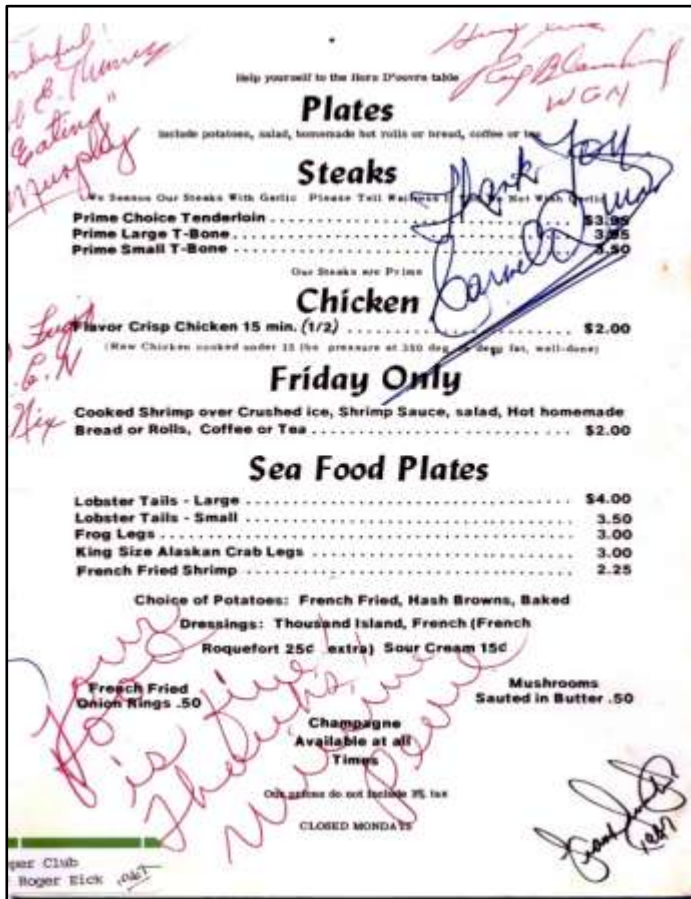 Help yourself to the Hors D'ouvre table
Plates
Include potatoes, salad, homemade hot rolls or bread, coffee or tea
Eating"
Murphy
WGN
Steaks
We Season Our Steaks With Garlic Please Tell Waitress Not Wish Garlic
Thank You
Prime Choice Tenderloin $3.95
Prime Large T-Bone 3.95
Prime Small T-Bone 3.50
Our Steaks are Prime
Chicken
Flavor Crisp Chicken 15 min. (1/2) $2.00
(Raw Chicken cooked under 15 lbs pressure at 350 deg. deep fat, well-done)
Nix
Friday Only
Cooked Shrimp over Crushed ice, Shrimp Sauce, salad, Hot homemade
Bread or Rolls, Coffee or Tea $2.00
Sea Food Plates
Lobster Tails - Large $4.00
Lobster Tails - Small 3.50
Frog Legs 3.00
King Size Alaskan Crab Legs 3.00
French Fried Shrimp 2.25
Choice of Potatoes: French Fried, Hash Browns, Baked
Dressings: Thousand Island, French (French
Roquefort 25¢ extra) Sour Cream 15¢
French Fried
Onion Rings .50
Mushrooms
Sauted in Butter .50
Champagne
Available at all
Times
Your
food
is fine!
Thanks!
Our prices do not include 3% tax
CLOSED MONDAYS
1967
per Club
Roger Eick 1967